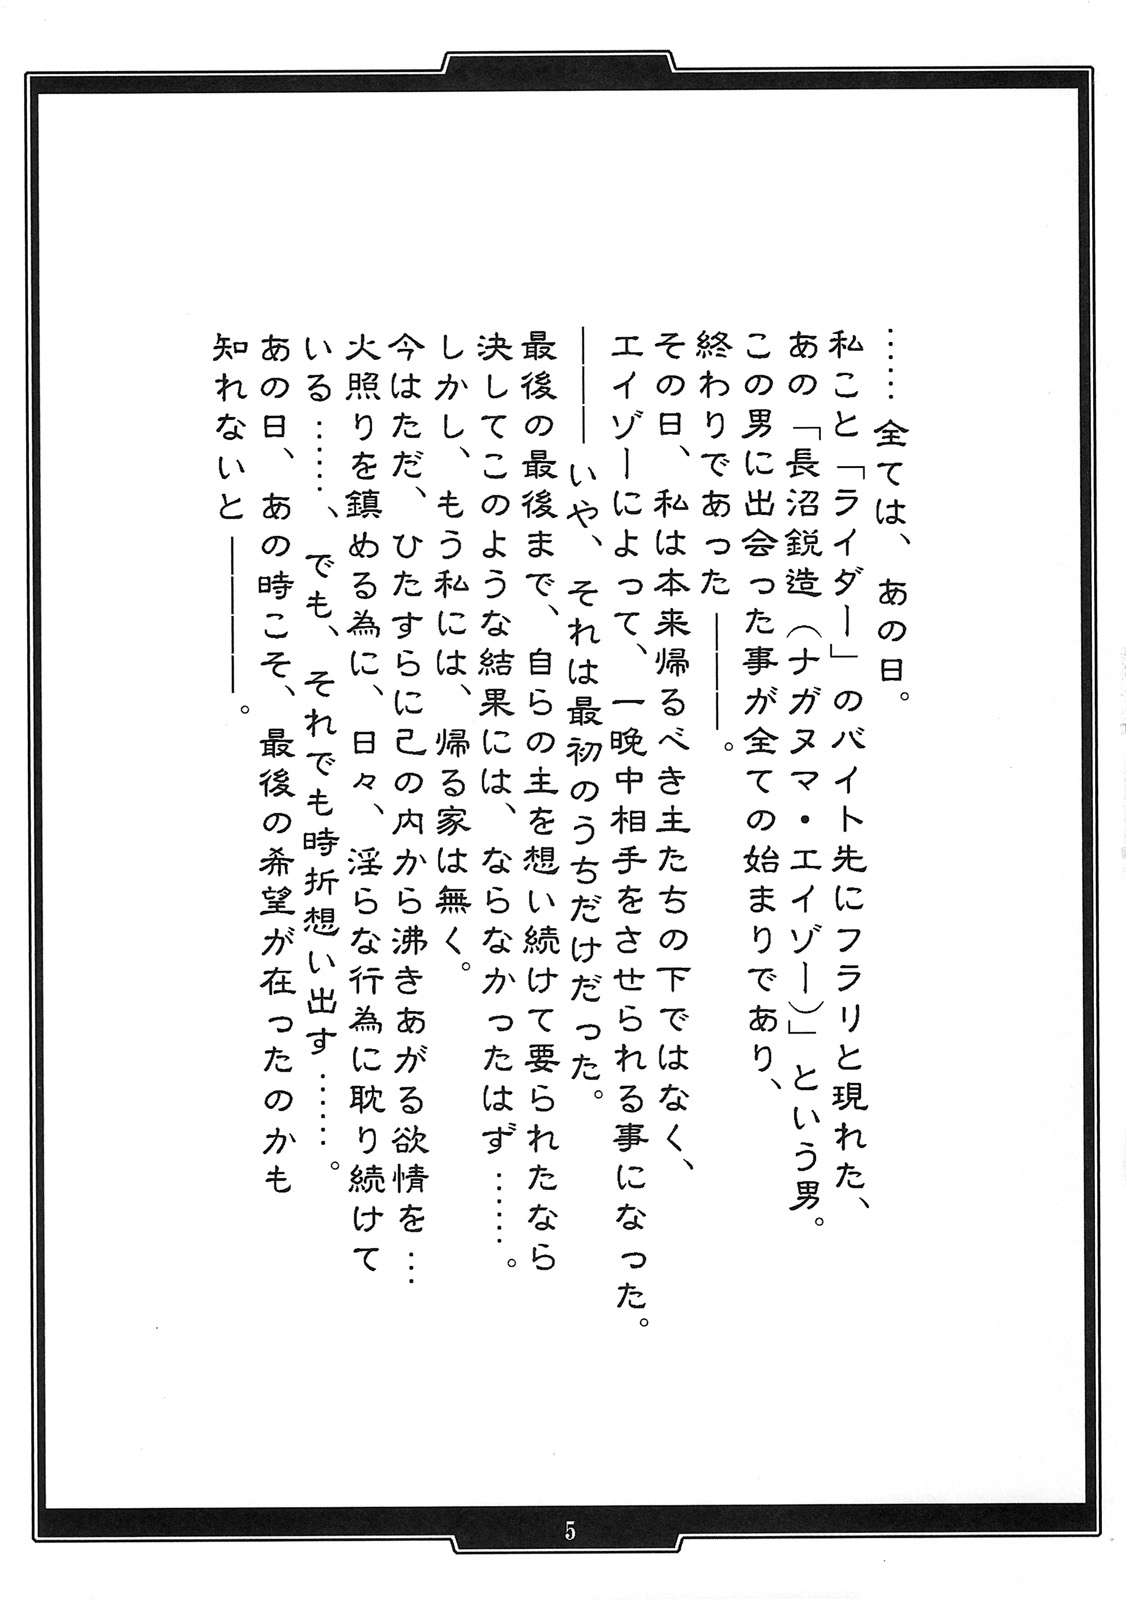 ……全ては、あの日。
私こと「ライダー」のバイト先にフラリと現れた、
あの「長沼鋭造（ナガヌマ・エイゾー）」という男。
この男に出会った事が全ての始まりであり、
終わりであった――――。
その日、私は本来帰るべき主たちの下ではなく、
エイゾーによって、一晩中相手をさせられる事になった。
――――いや、それは最初のうちだけだった。
最後の最後まで、自らの主を想い続けて要られたなら
決してこのような結果には、ならなかったはず………。
しかし、もう私には、帰る家は無く。
今はただ、ひたすらに己の内から沸きあがる欲情を…
火照りを鎮める為に、日々、淫らな行為に耽り続けて
いる……、でも、それでも時折想い出す……。
あの日、あの時こそ、最後の希望が在ったのかも
知れないと――――――。
5